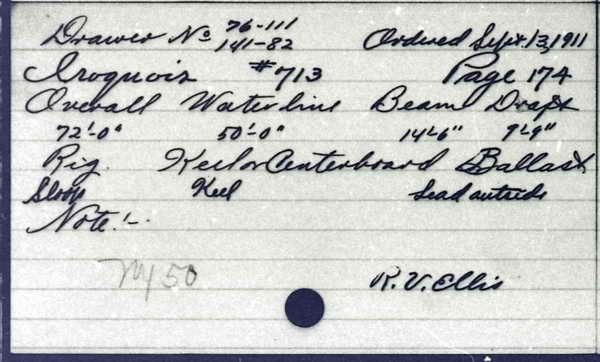 Drawer No 76-111
141-82 Ordered Sept. 13, 1911
Iroquois #713 Page 174
Overall Waterline Beam Draft
72'-0" 50'-0" 14'-6" 9'-9"
Rig. Keel or Centerboard Ballast
Sloop Keel Lead outside
Note:-
NY 50
R.V. Ellis